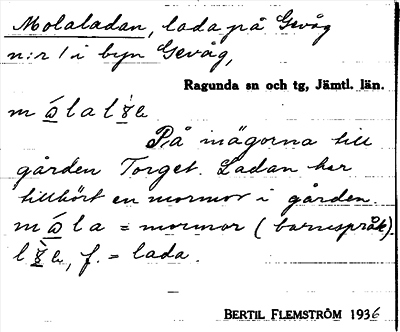 Molaladan, lada på Gevåg
n:r 1 i byn Gevåg,
Ragunda sn och tg, Jämtl. län.
På inägorna till
gården Torget. Ladan har
tillhört en mormor i gården.
= mormor (barnspråk).
f. = lada.
BERTIL FLEMSTRÖM 1936